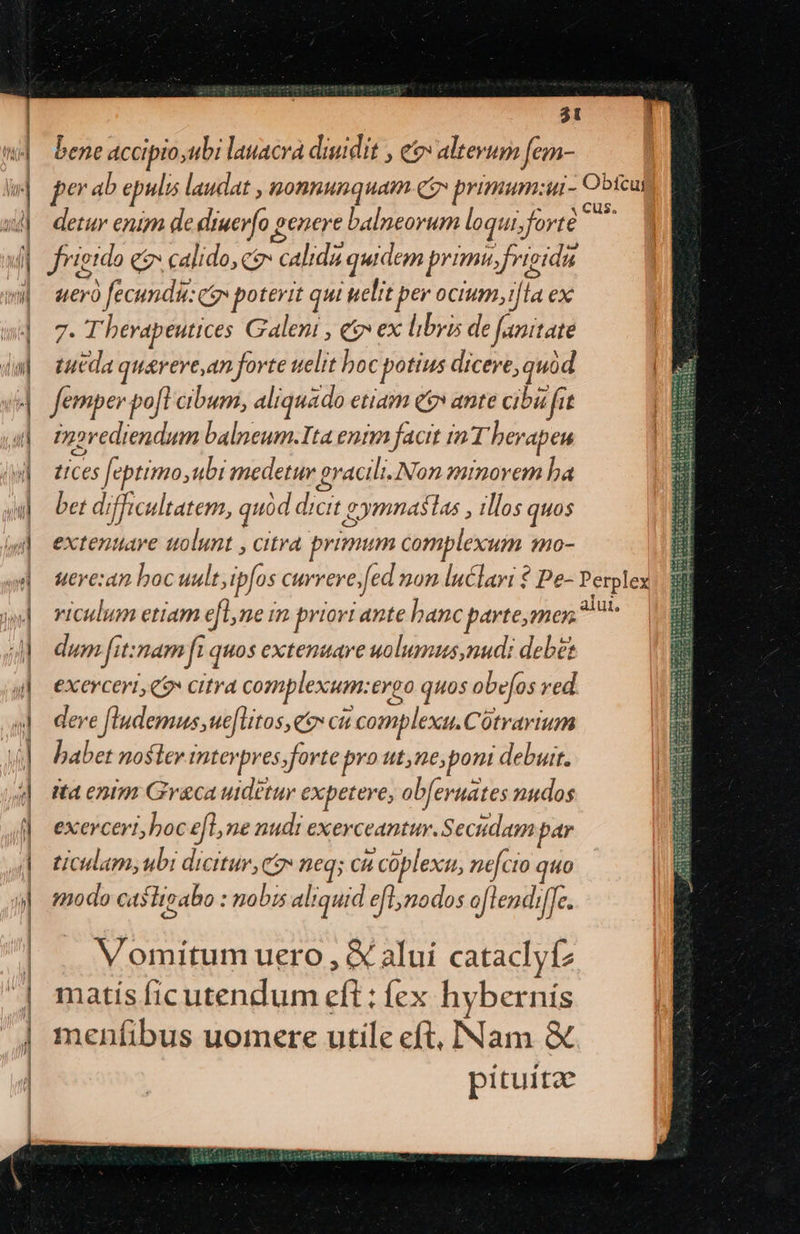 31
bene accipio,ubi lauacra diuidit , & alterum ſem-
per ab epulis laudat , nonnunquam & primum:ui-
Obſcu
cus.
detur enim de diuerſo genere balneorum loqui,fortè
frigido & calido,& calidū quidem primū,frigidū
uerò ſecundū:& poterit qui uelit per ocium,iſta ex
7. Therapeutices Galeni , & ex libris de ſanitate
tuēda quærere,an forte uelit hoc potius dicere,quòd
ſemper poſt cibum, aliquādo etiam & ante cibū ſit
ingrediendum balneum.Ita enim facit in Therapeu
tices ſeptimo,ubi medetur gracili.Non minorem ha
bet difficultatem, quòd dicit gymnaſtas , illos quos
extenuare uolunt , citra primum complexum mo-
uere:an hoc uult,ipſos currere,ſed non luctari ? Pe-
Perplex
alui.
riculum etiam eſt,ne in priori ante hanc parte,men
dum ſit:nam ſi quos extenuare uolumus,nudi debēt
exerceri,& citra complexum:ergo quos obeſos red
dere ſtudemus,ueſtitos,& cū complexu.Cōtrarium
habet noſter interpres,forte pro ut,ne,poni debuit.
ita enim Græca uidētur expetere, obſeruātes nudos
exerceri,hoc eſt,ne nudi exerceantur.Secūdam par
ticulam,ubi dicitur,& neq; cū cōplexu, neſcio quo
modo caſtigabo : nobis aliquid eſt,nodos oſtendiſſe.
Vomitum uero , & alui cataclyſ⸗
matis ſic utendum eſt : ſex hybernis
menſibus uomere utile eſt, Nam &
pituitæ